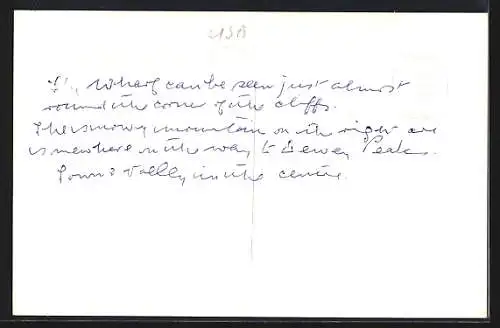 USA
Wharf can be seen just almost
round the corner of the cliffs.
The snowy mountain on the right are
somewhere on the way to Dewey Peaks.
Town & Valley in the centre.